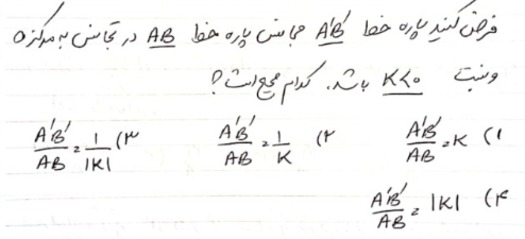 فرض کنید پاره خط A'B' مجانس پاره خط AB در تجانس به مرکز O
و نسبت K<0 باشد. کدام صحیح است؟
۱) A'B'/AB = K ۲) A'B'/AB = 1/K ۳) A'B'/AB = 1/|K|
۴) A'B'/AB = |K|